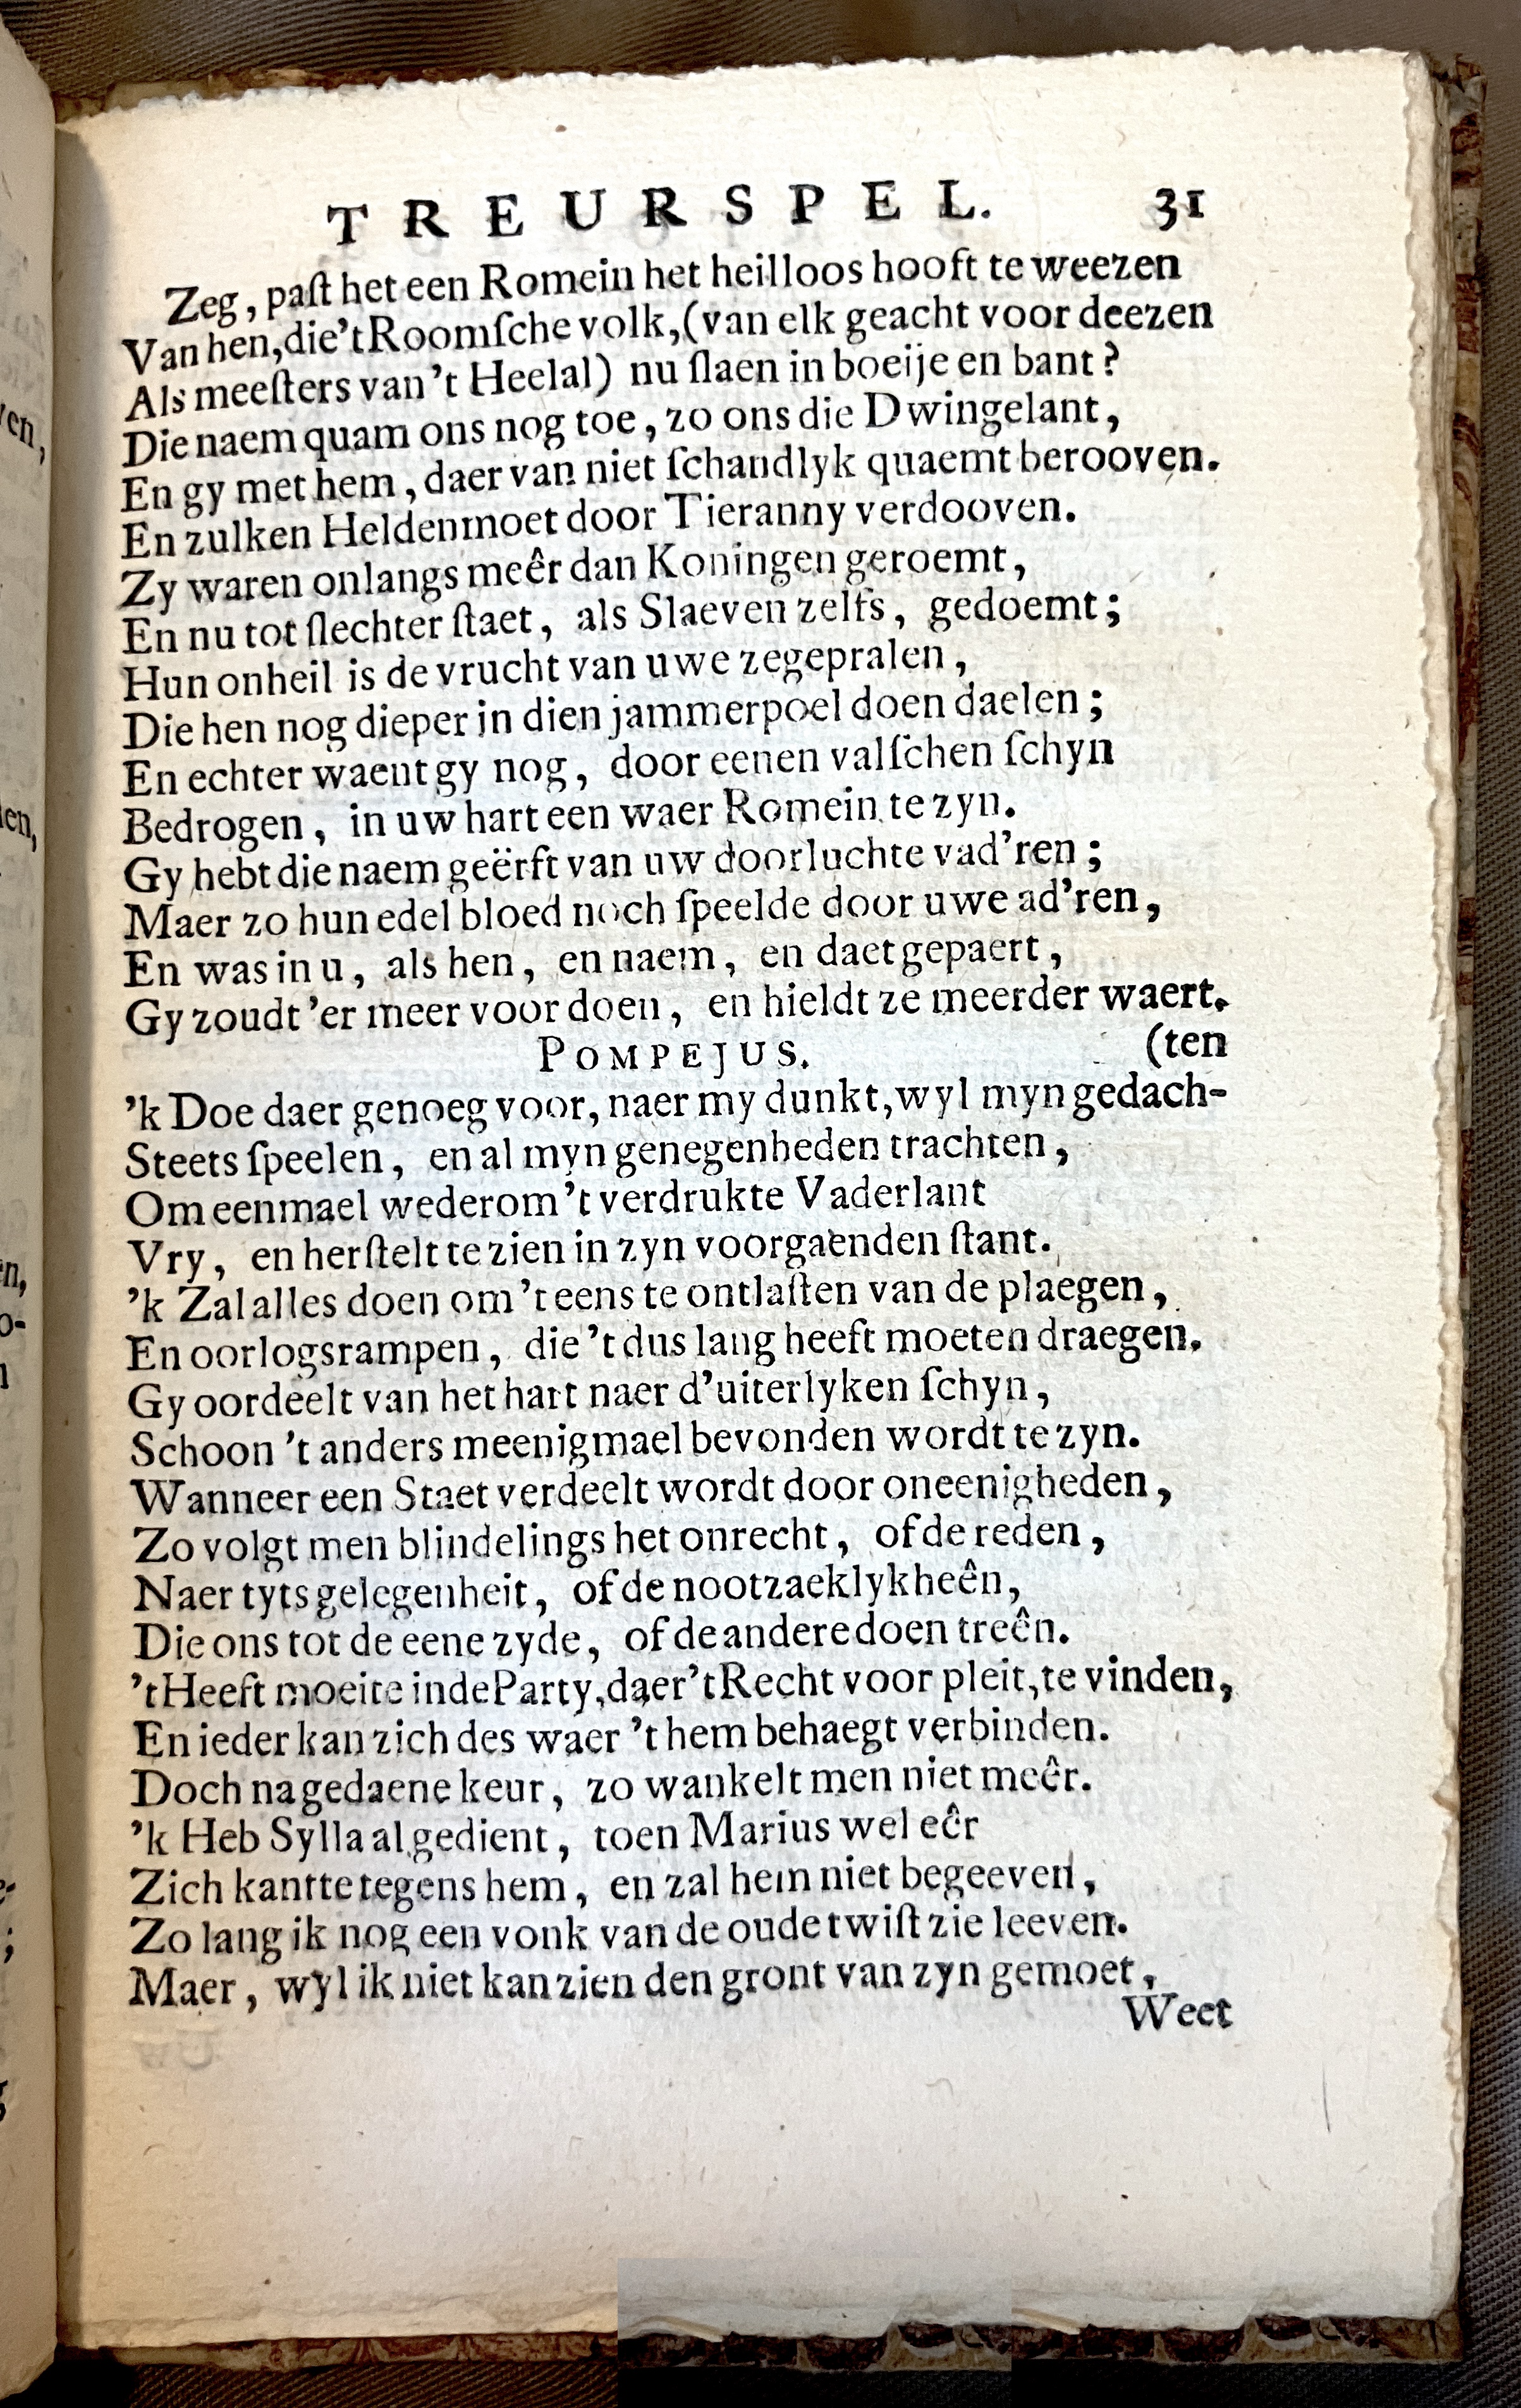 TREURSPEL. 31
Zeg, paſt het een Romein het heilloos hooft te weezen
Van hen, die 't Roomſche volk, (van elk geacht voor deezen
Als meeſters van 't Heelal) nu ſlaen in boeije en bant?
Die naem quam ons nog toe, zo ons die Dwingelant,
En gy met hem, daer van niet ſchandlyk quaemt berooven.
En zulken Heldenmoet door Tieranny verdooven.
Zy waren onlangs meêr dan Koningen geroemt,
En nu tot ſlechter ſtaet, als Slaeven zelfs, gedoemt;
Hun onheil is de vrucht van uwe zegepralen,
Die hen nog dieper in dien jammerpoel doen daelen;
En echter waent gy nog, door eenen valſchen ſchyn
Bedrogen, in uw hart een waer Romein te zyn.
Gy hebt die naem geërft van uw doorluchte vad'ren;
Maer zo hun edel bloed noch ſpeelde door uwe ad'ren,
En was in u, als hen, en naem, en daet gepaert,
Gy zoudt 'er meer voor doen, en hieldt ze meerder waert.
POMPEJUS. (ten
'k Doe daer genoeg voor, naer my dunkt, wyl myn gedach-
Steets ſpeelen, en al myn genegenheden trachten,
Om eenmael wederom 't verdrukte Vaderlant
Vry, en herſtelt te zien in zyn voorgaenden ſtant.
'k Zal alles doen om 't eens te ontlaſten van de plaegen,
En oorlogsrampen, die 't dus lang heeft moeten draegen.
Gy oordeelt van het hart naer d'uiterlyken ſchyn,
Schoon 't anders meenigmael bevonden wordt te zyn.
Wanneer een Staet verdeelt wordt door oneenigheden,
Zo volgt men blindelings het onrecht, of de reden,
Naer tyts gelegenheit, of de nootzaeklykheên,
Die ons tot de eene zyde, of de andere doen treên.
't Heeft moeite in de Party, daer 't Recht voor pleit, te vinden,
En ieder kan zich des waer 't hem behaegt verbinden.
Doch na gedaene keur, zo wankelt men niet meêr.
'k Heb Sylla al gedient, toen Marius wel eêr
Zich kantte tegens hem, en zal hem niet begeeven,
Zo lang ik nog een vonk van de oude twiſt zie leeven.
Maer, wyl ik niet kan zien den gront van zyn gemoet,
Weet